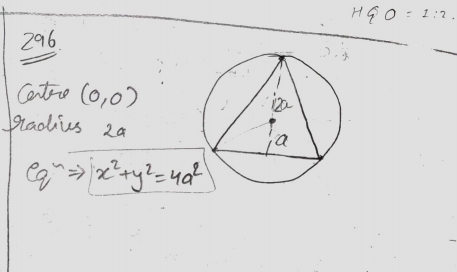 H G O = 1:2.
296
Centre (0,0)
2a
radius 2a
a
Eqⁿ ⇒ x²+y²=4a²